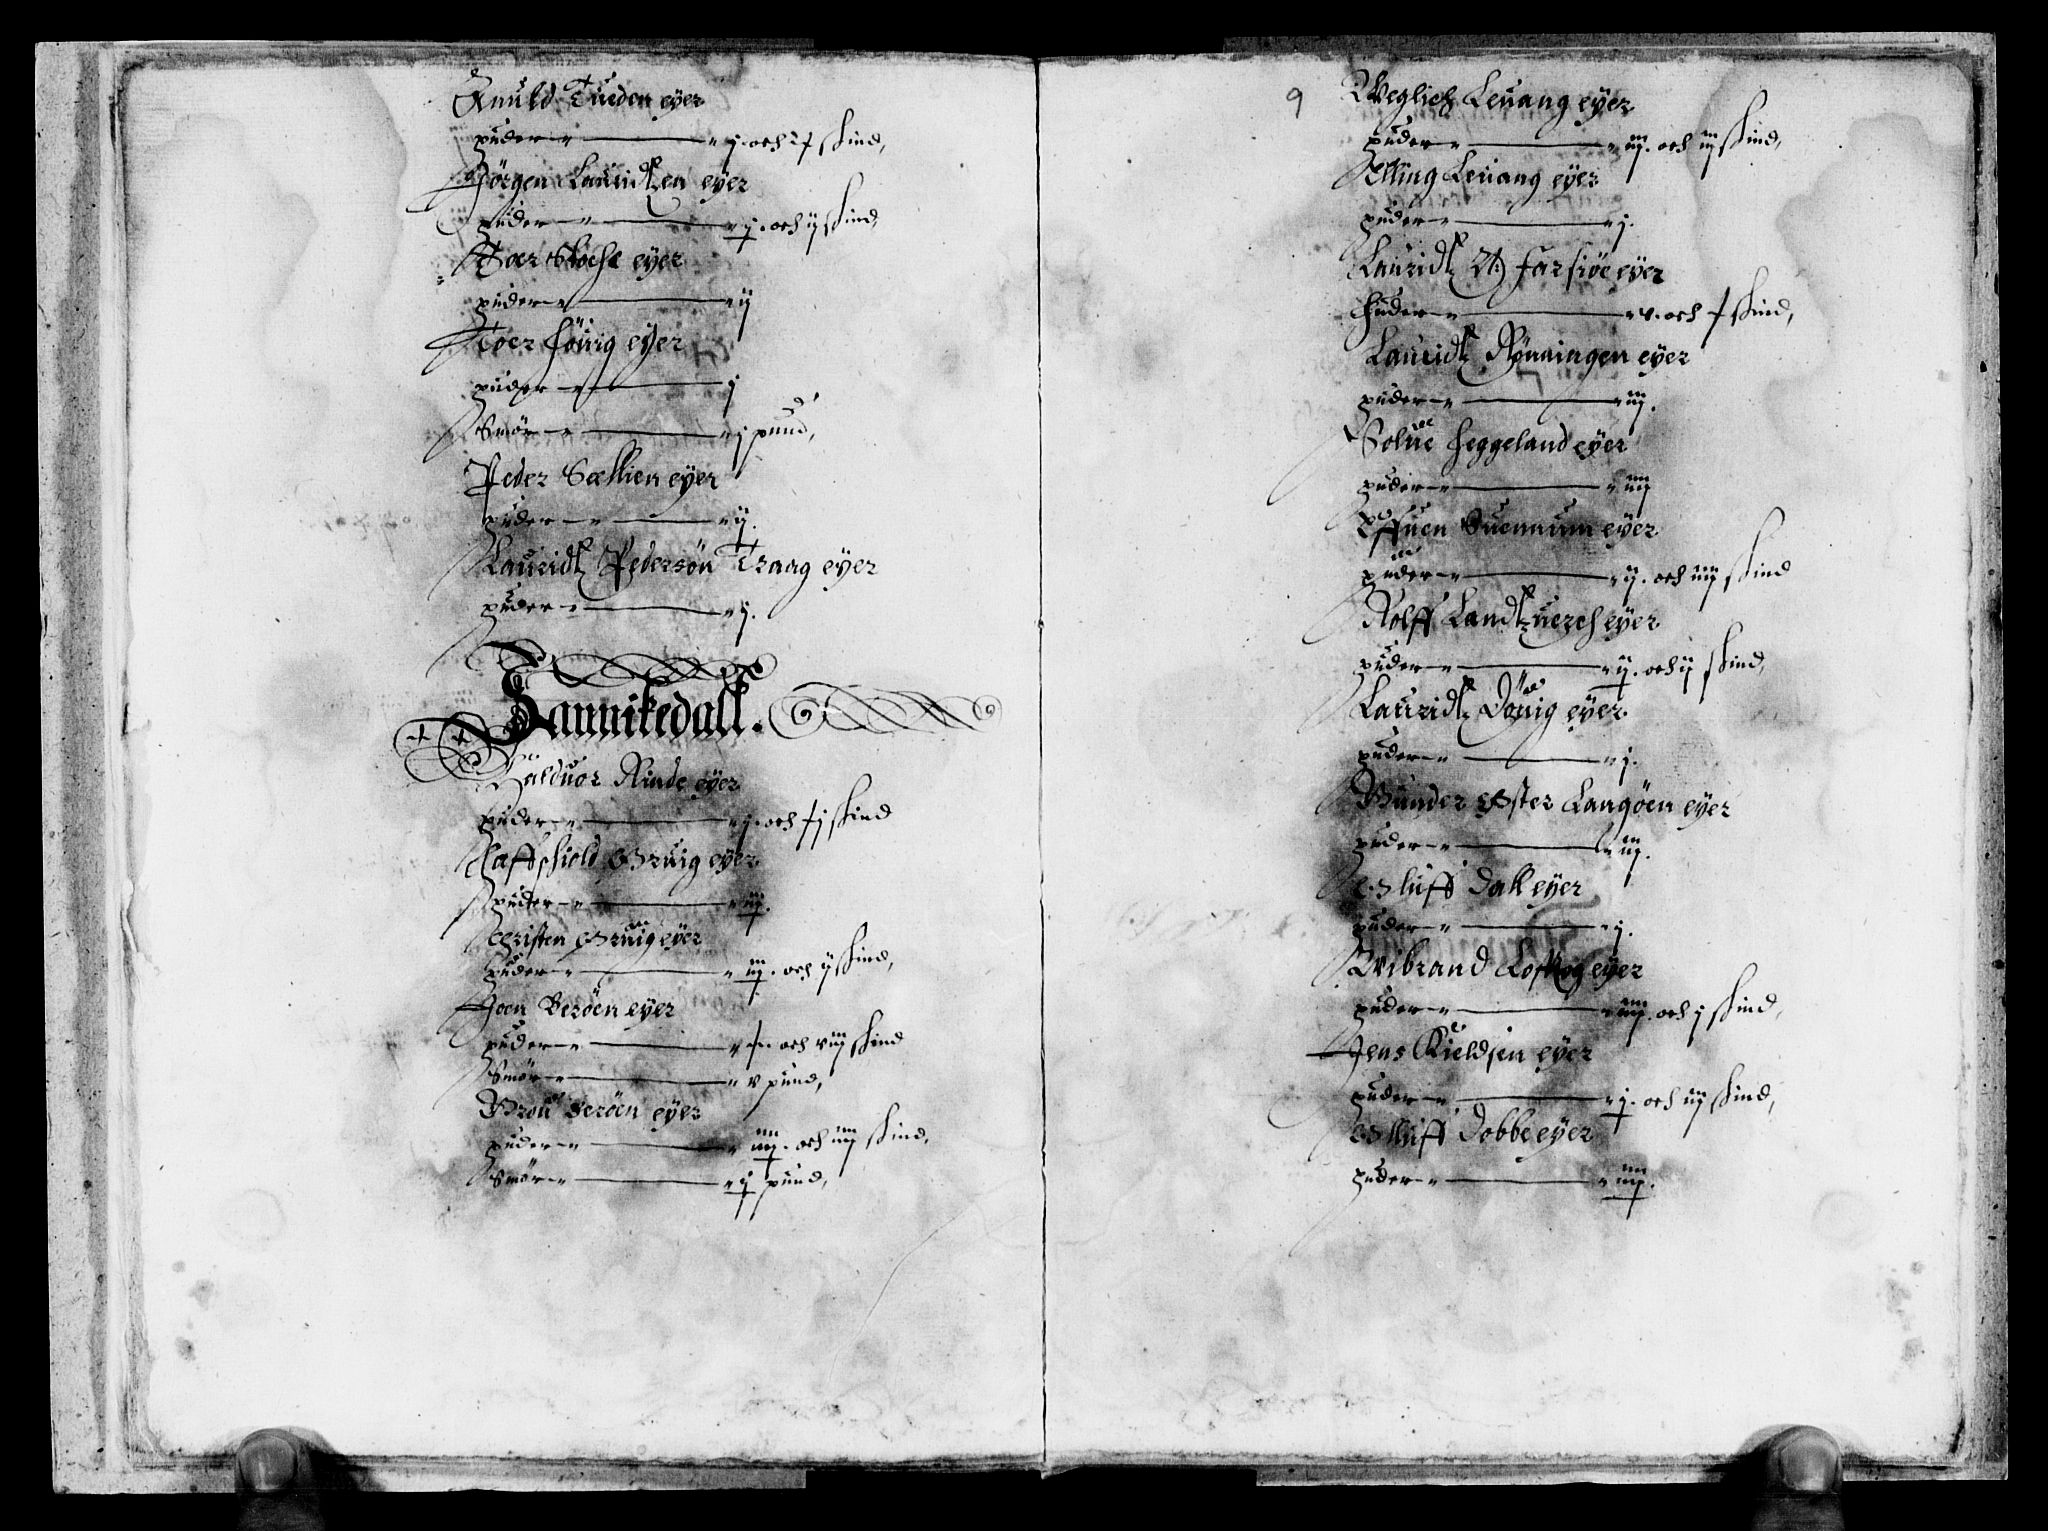 Knuld Tueden eyer
huder – j. och 1ƒ skind,
Jörgen Lauridtzen eyer
huder – j. och ij skind,
Toer Skoche eyer
huder – ij
Toer Höuig eyer
huder – j
Smör – j pund,
Peder Sællien eyer
huder – ij.
Lauridtz Pedersön Traag eyer
huder – j.
Sannikedall.
Halduor Rinde eyer
huder – j. och ƒj skind
Haffskiold Bruig eyer
huder – iij.
Christen Bruig eyer
huder – iij. och ij skind,
Joen Beröen eyer
huder – ƒ. och viij skind
Smör – v pund,
Broni Beröen eyer
huder – iiij. och iiij skind,
Smör – ij pund,
9
Weglich Leuang eyer
huder – iij. och iij skind,
Elling Leuang eyer
huder – j.
Lauridtz Farsiöe eyer
Huder – v. och ƒ skind,
Lauridtz Rönningen eyer
huder – iij.
Solue Heggeland eyer
huder – iiij
Effuen Suennum eyer
huder – ij. och iiij skind
Rolff Landtzuerch eyer
huder – ij. och ij skind,
Lauridtz Döuig eyer
huder – j.
Gunder Öster Langöen eyer
huder – iij.
Oluff Dall eyer
huder – j.
Wibrand Lofthog eyer
huder – iiij. och j skind,
Jens Kieldsen eyer
huder – j. och iij skind,
Olluff Dobbe eyer
huder – iiij.